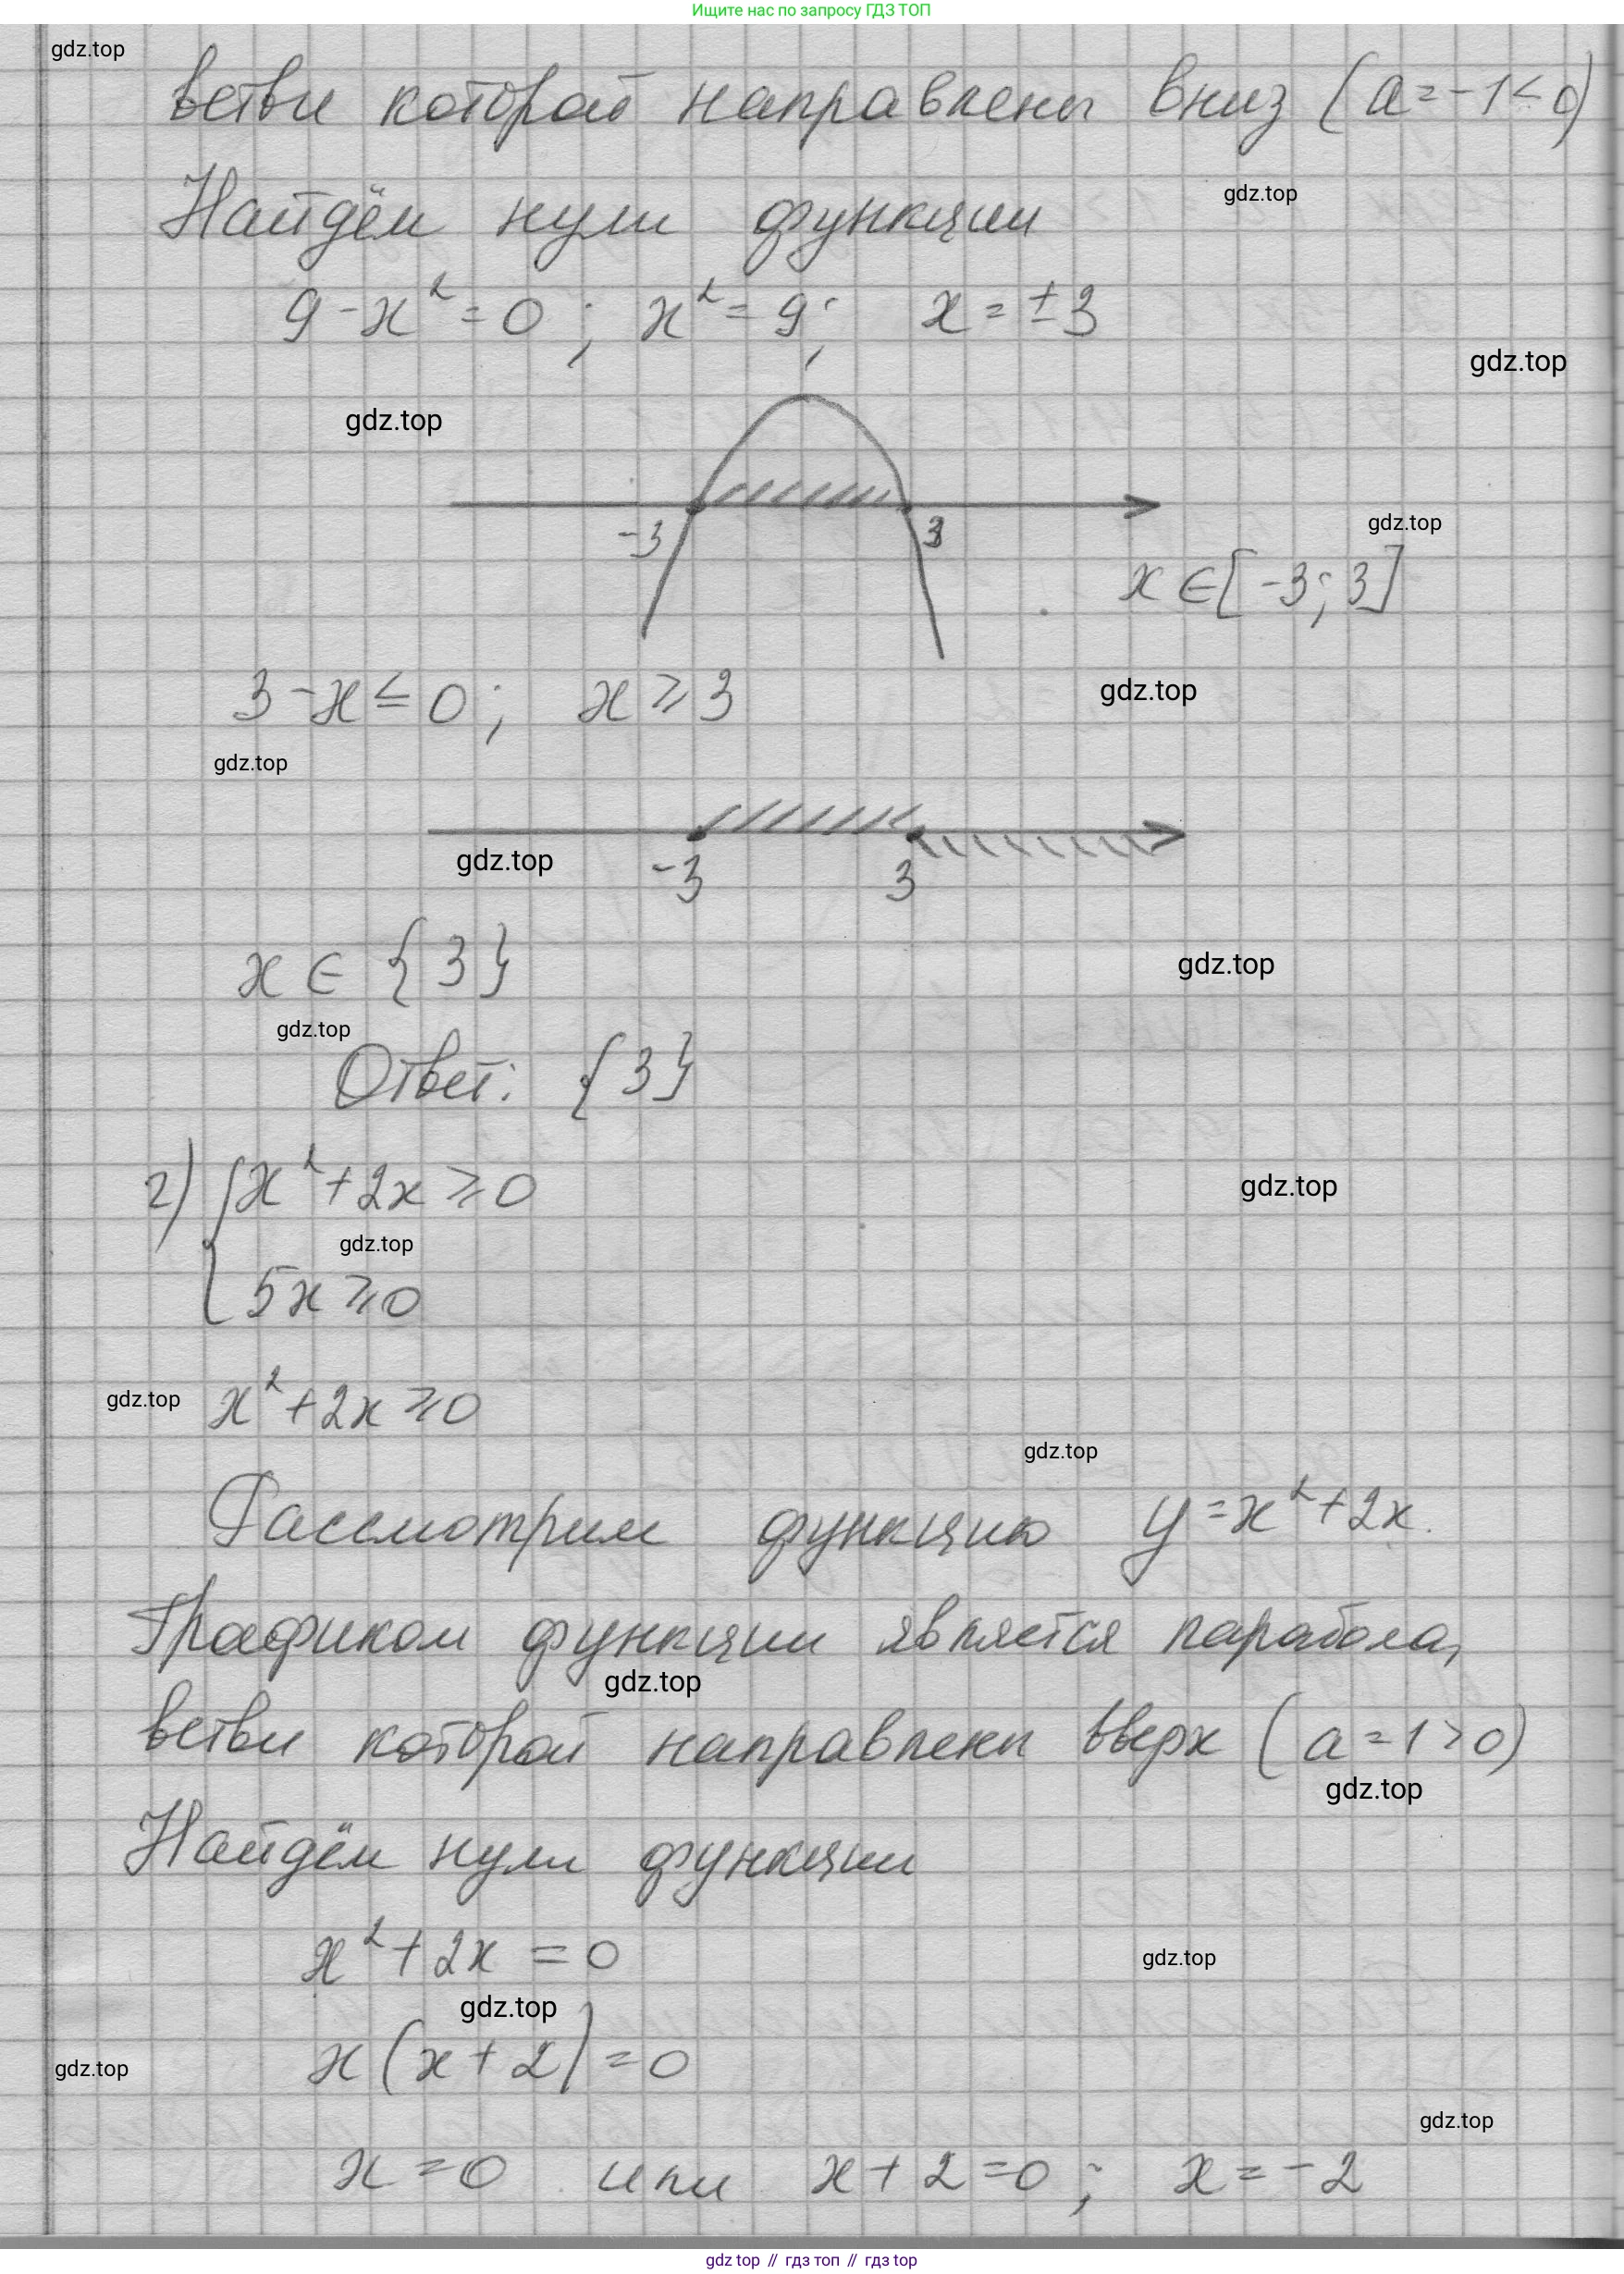 Ищите нас по запросу ГДЗ ТОП
gdz.top
ветви которой направлены вниз (a=-1<0)
Найдём нули функции
gdz.top
9-x²=0; x²=9; x=±3
gdz.top
gdz.top
-3 3
gdz.top
x∈[-3;3]
3-x≤0; x≥3
gdz.top
gdz.top
gdz.top
-3 3
x∈{3}
gdz.top
gdz.top
Ответ: {3}
г) { x²+2x≥0
gdz.top
gdz.top
5x≥0
gdz.top
x²+2x≥0
gdz.top
Рассмотрим функцию y=x²+2x.
Графиком функции является парабола,
gdz.top
ветви которой направлены вверх (a=1>0)
gdz.top
Найдём нули функции
x²+2x=0
gdz.top
gdz.top
x(x+2)=0
gdz.top
gdz.top
x=0 или x+2=0; x=-2
gdz top // гдз топ // гдз top